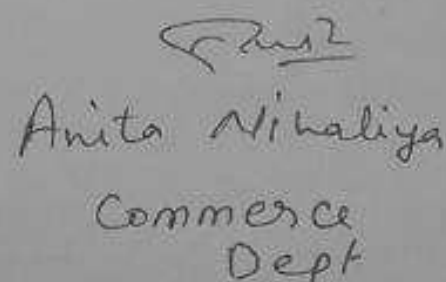 Anita Nihaliya
Commerce
Dept